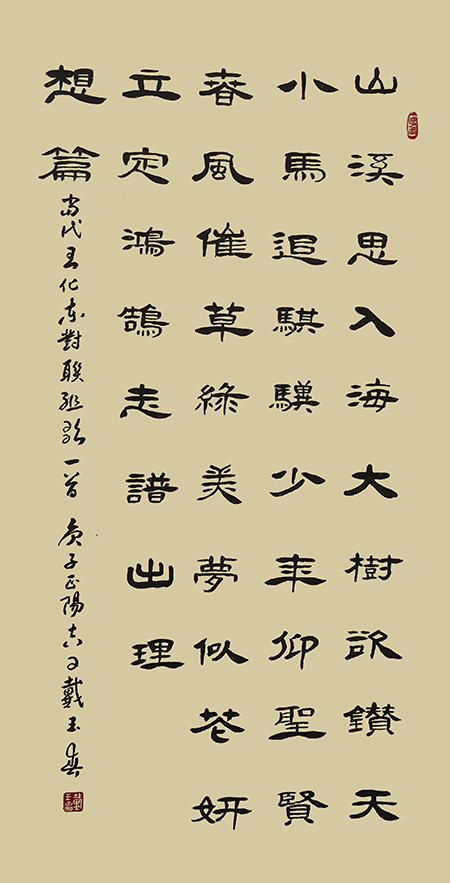 山溪思入海大樹欲鑽天
小馬追騏驥少年仰聖賢
春風催草綠美夢似花妍
立定鴻鵠志譜出理
想篇
当代王化东對聯組歌一首 庚子正陽吉日戴玉春